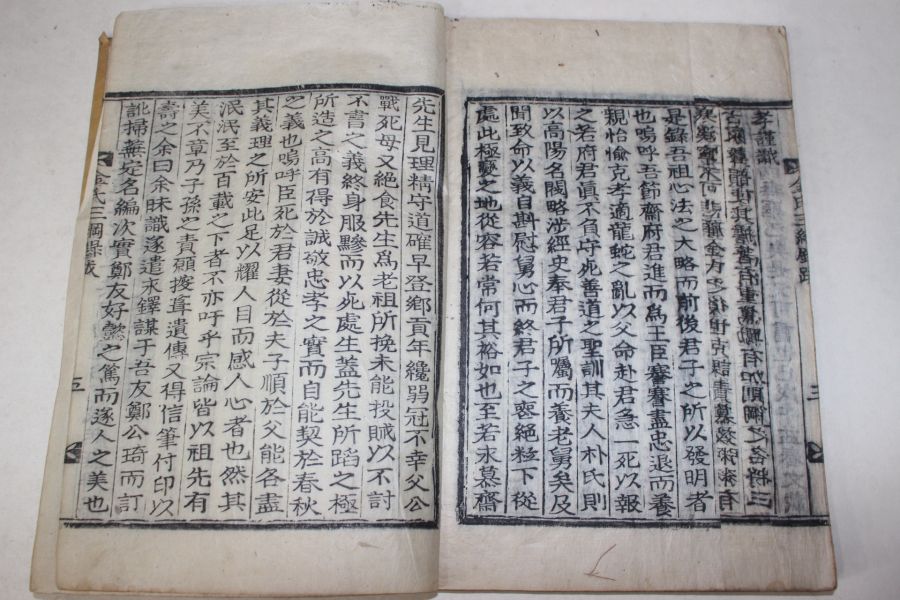 是錄吾祖心法之大略而前後君子之所以發明者
也嗚呼吾節齋府君進而爲王臣蹇蹇盡忠退而養
親怡愉克孝適龍蛇之亂以父命赴君急一死以報
之若府君眞不負守死善道之聖訓其夫人朴氏則
以高陽名閥略涉經史奉君子所屬而養老舅矣及
聞致命以義自斟慰舅心而終君子之喪絶粒下從
處此極變之地從容若常何其裕如也至若永慕齋
先生見理精守道確早登鄕貢年纔弱冠不幸父公
戰死母又絶食先生爲老祖所挽未能投賊以不討
不書之義終身服黲而以死處生蓋先生所蹈之極
所造之高有得於誠敬忠孝之實而自能契於春秋
之義也嗚呼臣死於君妻從於夫子順於父能各盡
其義理之所安此足以耀人目而感人心者也然其
泯泯至於百載之下者不亦吁乎宗論皆以祖先有
美不章乃子孫之責顧接葺遺傳又得信筆付印以
壽之余曰余昧識遂遣永鐸謀于吾友鄭公琦而訂
訛掃蕪定名編次實鄭友好懿之篤而遂人之美也
金氏三綱錄 跋
五